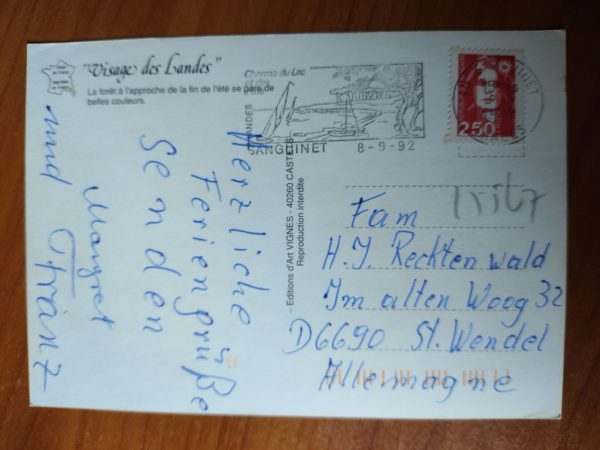 "Visage des Landes"
La forêt à l'approche de la fin de l'été se pare de
belles couleurs.
Charme du Lac
et des
LANDES
SANGUINET 8-9-92
2,50
Editions d'Art VIGNES - 40260 CASTETS
Reproduction interdite
Herzliche
Feriengrüße
Senden
Margret
und Franz
Fam
H.J. Recktenwald
Im alten Woog 32
D6690 St. Wendel
Allemagne